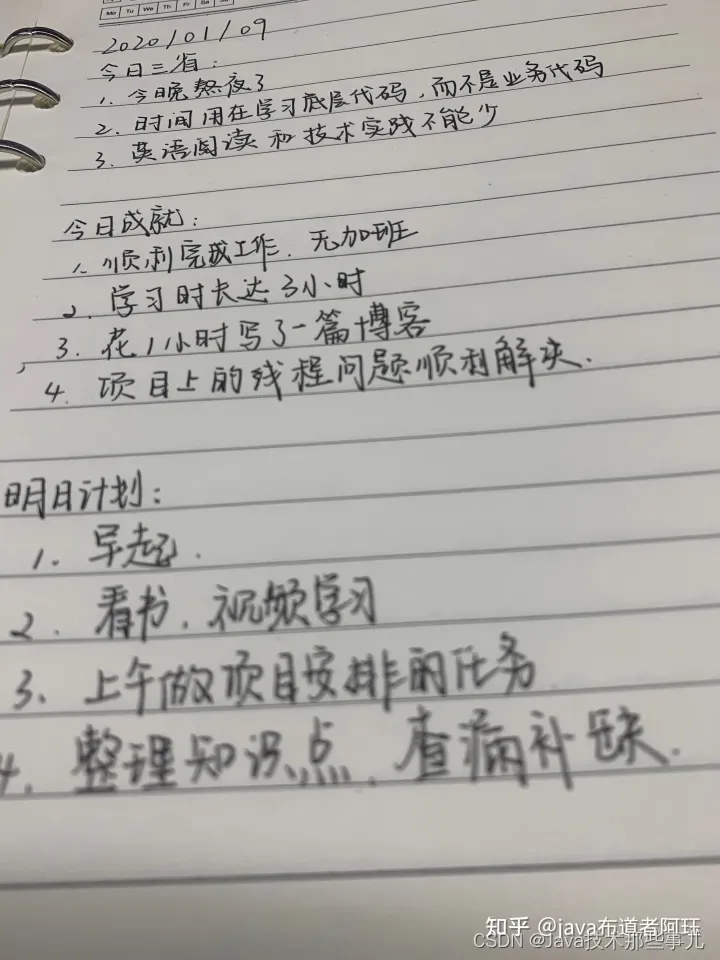 Mo Tu We Th Fr Sa Su
2020/01/09
今日三省:
1. 今晚熬夜了
2. 时间用在学习底层代码,而不是业务代码
3. 英语阅读和技术实践不能少
今日成就:
1. 顺利完成工作. 无加班
2. 学习时长达3小时
3. 花1小时写了一篇博客
4. 项目上的线程问题顺利解决.
明日计划:
1. 早起.
2. 看书, 视频学习
3. 上午做项目安排的任务
4. 整理知识点, 查漏补缺.
知乎 @java布道者阿珏
CSDN @Java技术那些事儿